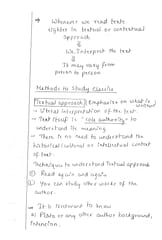 → Whenever we read texts
either in textual or contextual
Approach
⇓
We Interpret the text
⇓
It may vary from
person to person
Methods to Study Classics
Textual approach : Emphasise on what is written
- Literal interpretation of the text.
- Text itself is "sole authority" to
understand its meaning.
- There is no need to understand the
historical/cultural or intellectual context
of text.
Techniques to understand Textual approach
① Read again and again
② You can study other works of the
author.
→ It is irrelevant to know
a) Plato or any other author background,
Intension.